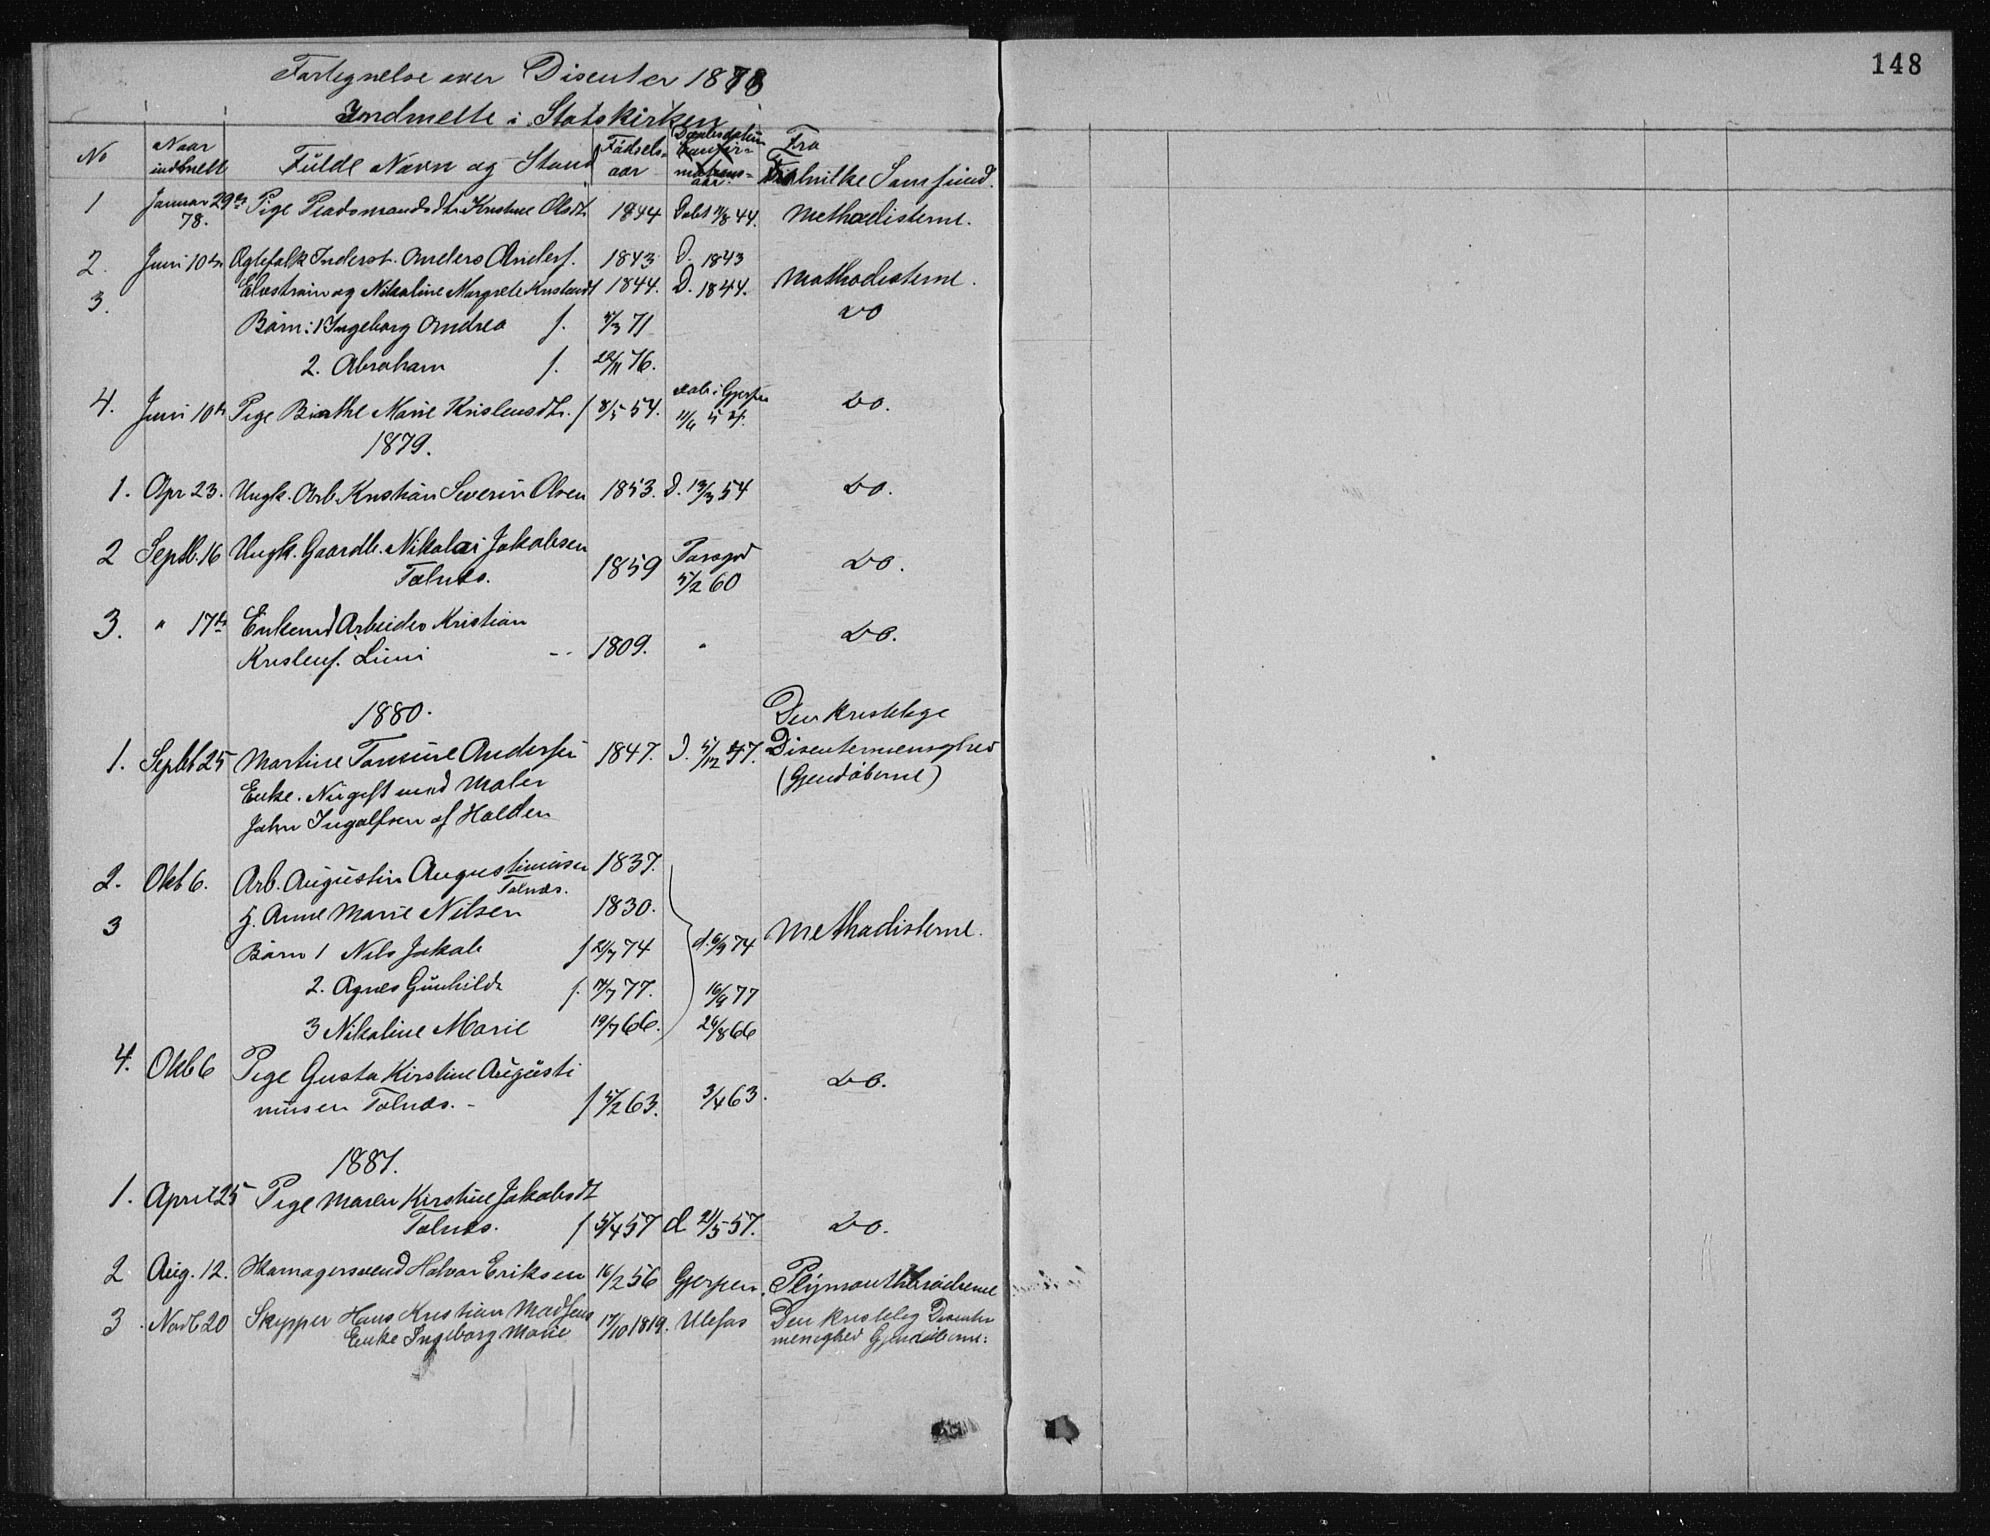 148
Fortegnelse over Disenter 1878
Indmeldte i Statskirken
No
Naar indmeldt
Fulde Navn og Stand
Fødsels-aar
Daabsdatum
Fra hvilke Samfund.
1 Januar 29de 78. Pige Kristine Olsdt. 1844 Døbt 11/8 44. Methodisterne.
2. Juni 10de Ægtefolk Inderst. Anders Anders. 1843 D. 1843
3. og Nikoline Margrete 1844. D. 1844. Methodisterne.
Børn: 1 Ingeborg Andrea f. 71 Do
2. Abraham f. 76.
4. Juni 10de Pige Birthe Marie Kristensdt. f 8/5 54. i Gjerpen 11/6 54. Do.
1879.
1. Apr 23. Ungk. Arb. Kristian Severin Olsen 1853. D. 13/3 54 Do.
2 Septb. 16 Ungk. Gaardb. Nikolai Jakobsen
Tolnæs. 1859 Porsgrd 5/2 60 Do.
3. " 17de Enkemd Arbeider Kristian
Kristens. Luni -- 1809. " Do.
1880.
Den kristelige
1. Septbr 25 Martine Tomine Andersen 1847. D. 5/12 47. Disentermenighed
Enke. Nygift med Maler (Gjendøberne)
John Ingolfsen af Halden
2. Oktb 6. Arb. Augustin Augustinusen 1837.
Tolnæs.
3 H. Anne Marie Nilsen 1830. Methodisterne.
Børn 1 Nils Jakob f 21/7 74 d. 6/9 74
2. Agnes Gunhild f. 77. 16/9 77
3 Nikoline Marie 19/7 66. 26/8 66
4. Oktb 6 Pige Gusta Kirstine Augusti
nusen Tolnæs. - f 5/2 63. 3/4 63. Do.
1881.
1. April 25 Pige Maren Kirstine Jakobsdt
Tolnæs. f 5/4 57 d. 21/5 57. Do.
2 Aug. 12. Skomagersvend Halvor Eriksen 16/2 56 Gjerpen. Plymouthbrødrene
3 Novb 20 Skipper Hans Kristian Madsens 17/10 1819. Ulefos Den kristelig Disenter
Enke Ingeborg Marie menighed Gjendøberne.